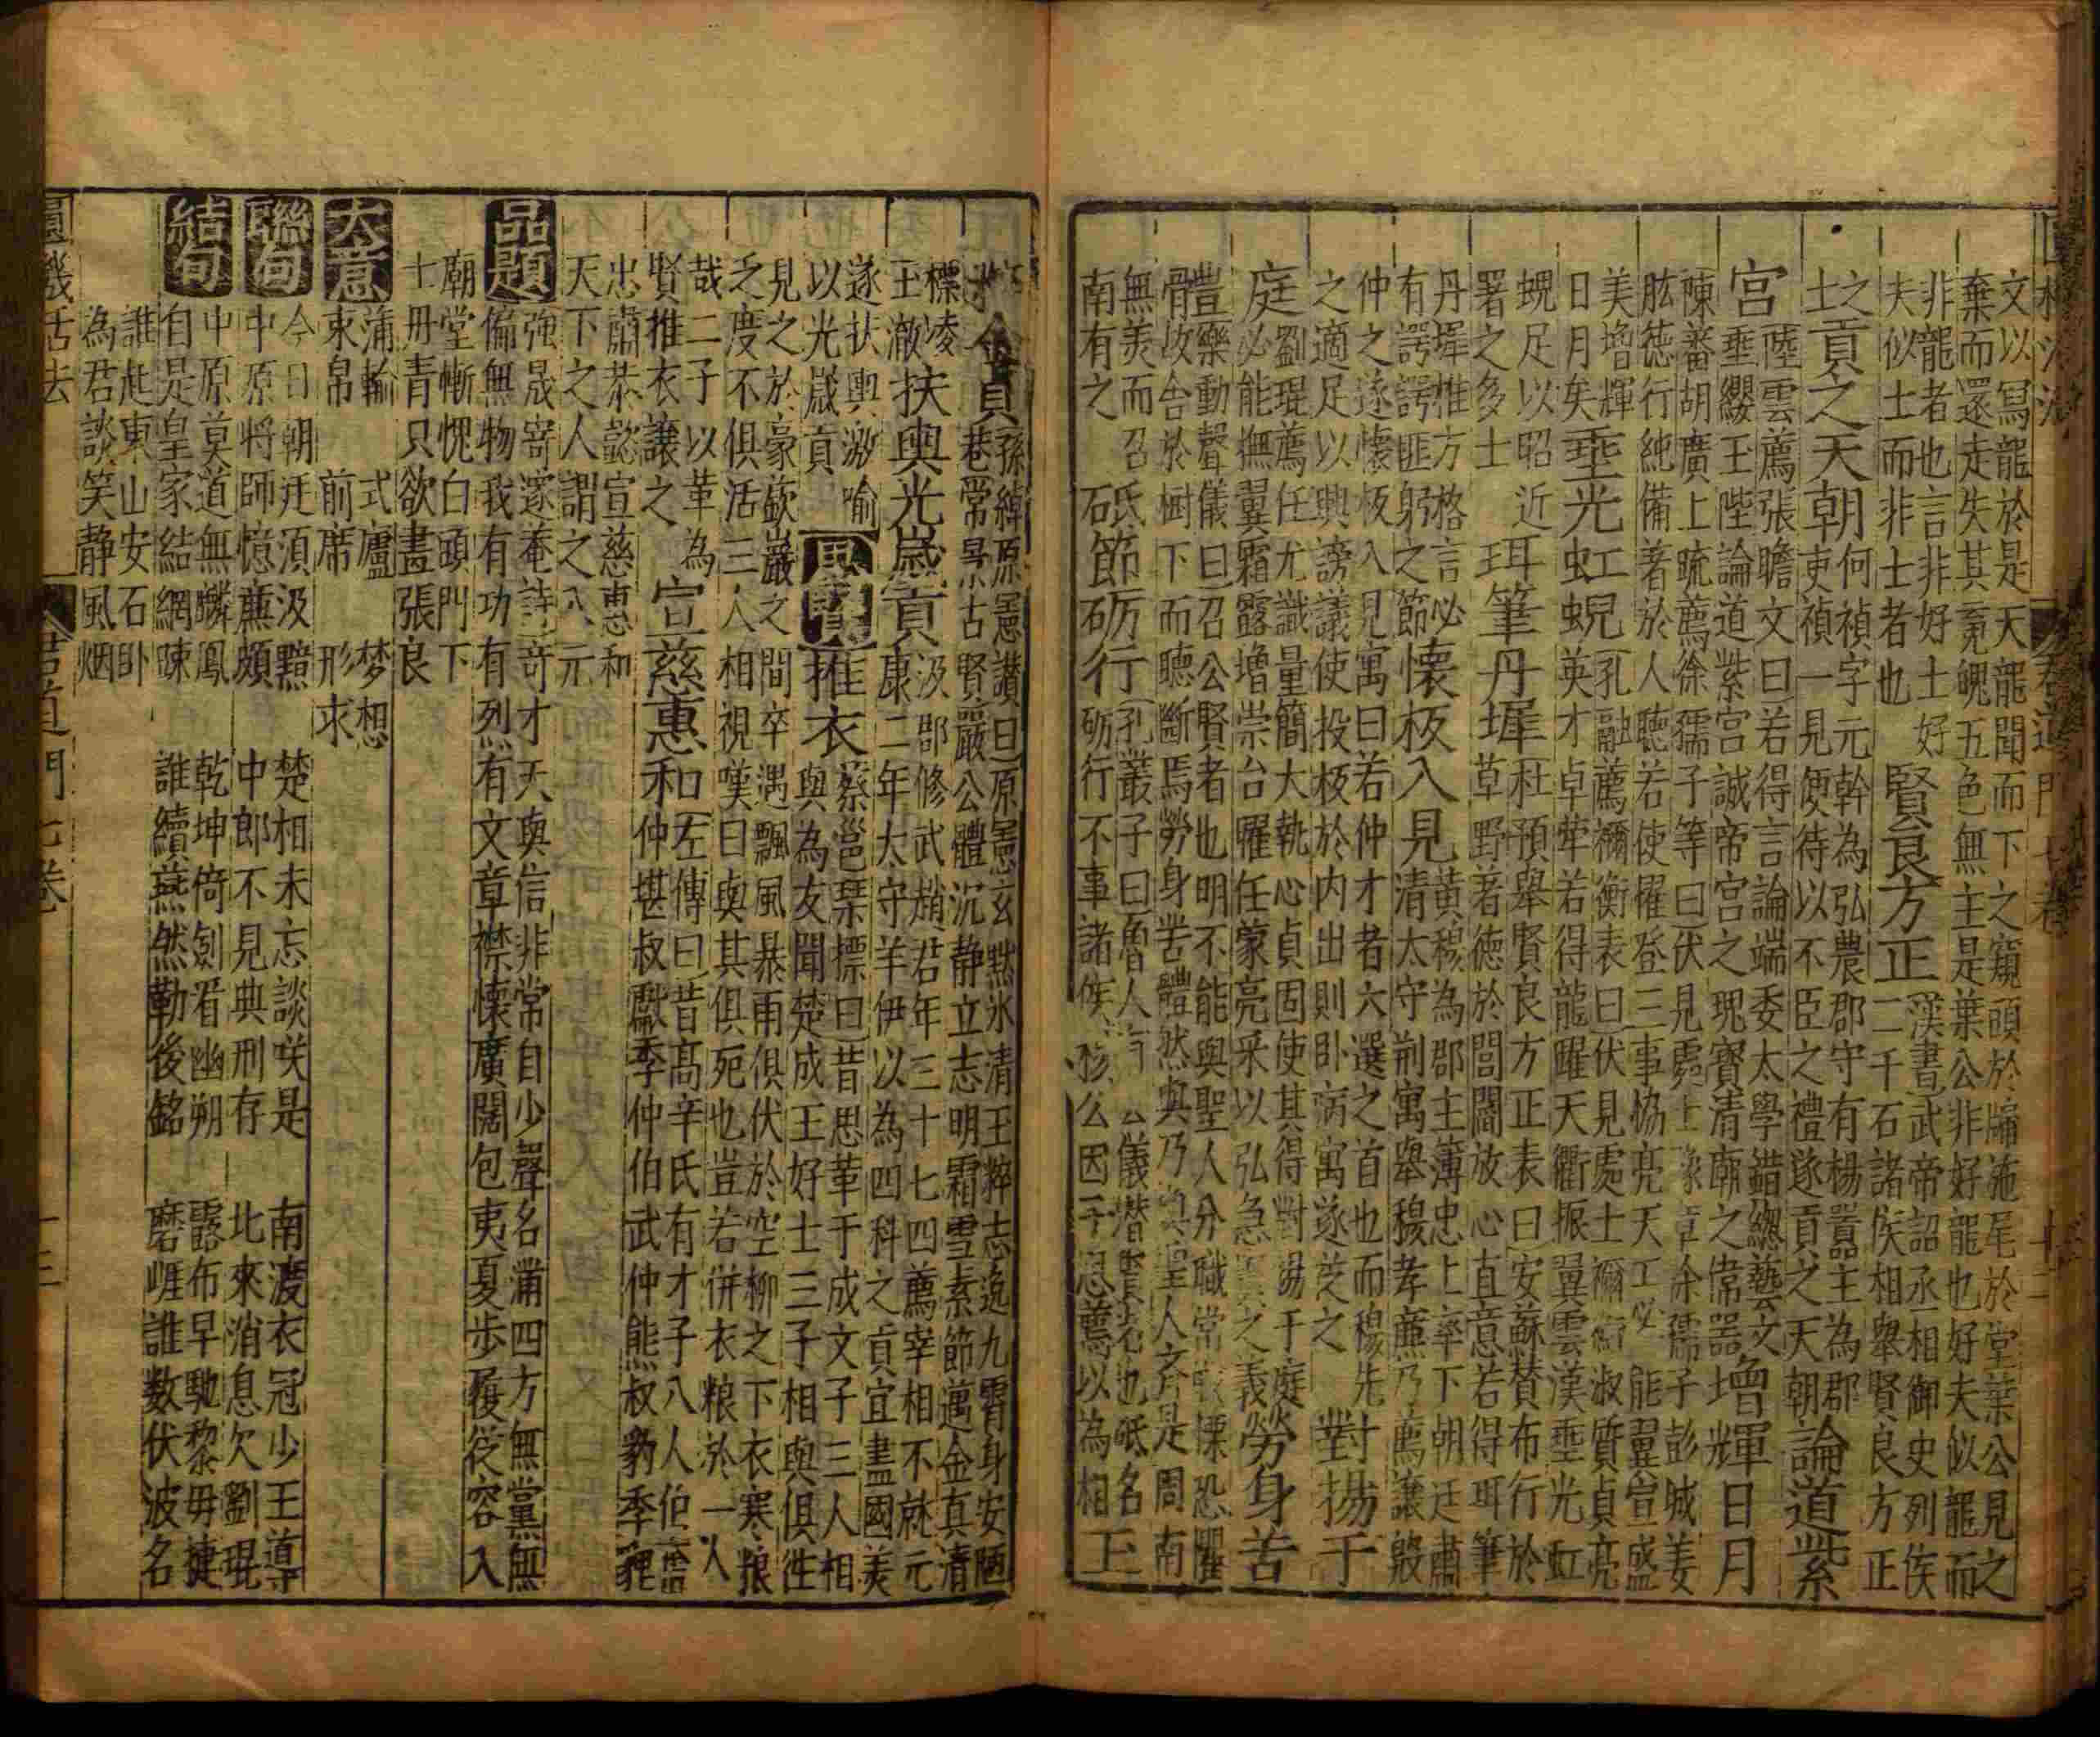 文以寫龍於是天龍聞而下之窺頭於牖施尾於堂葉公見之
棄而還走失其䰟魄五色無主是葉公非好龍也好夫似龍而
非龍者也言非好士好
夫似士而非士者也
賢良方正
漢書武帝詔丞相御史列侯
二千石諸侯相舉賢良方正
之
士
貢之天朝
何禎字元幹為弘農郡守有楊囂主為郡
吏禎一見便待以不臣之禮遂貢之天朝
論道紫
宮
陸雲薦張瞻文曰若得言論端委太學錯緫藝文
垂纓玉陛論道紫宮誠帝宮之瑰寶清廟之偉器
增輝日月
陳蕃胡廣上疏薦徐孺子等曰伏見豫章徐孺子彭城姜
肱徳行純備著於人聽若使擢登三事協亮天工必能翼宣盛
美增輝
日月矣
垂光虹蜺
孔融薦禰衡表曰伏見處士禰衡淑質貞亮
英才卓犖若得龍躍天衢振翼雲漢垂光虹
蜺足以昭近
署之多士
珥筆丹墀
杜預舉賢良方正表曰安蘇賛布行於
草野著徳於閭閻放心直意若得珥筆
丹墀推方格言必
有諤諤匪躬之節
懷板入見
黄穆為郡主簿忠上率下朝廷肅
清太守荆寓舉穆孝廉乃薦讓殷
仲之遂懷板入見寓曰若仲才者六選之首也而穆先
之適足以興謗議使投板於内出則卧病寓遂芝之
對揚于
庭
劉琨薦任尤識量簡大執心貞固使其得對揚于庭
必能撫翼霜露增崇台曜任蒙亮采以弘急之義
勞身苦
體
骨
樂動聲儀曰召公賢者也明不能與聖人分職常慄恐懼
故舍於樹下而聽斷焉勞身苦體然與乃與聖人齊是周南
無美而召
南有之
砥節砺行
孔叢子曰魯人有公儀潜賢者也砥名
砺行不事諸侯穆公因子思薦以為相
玉
金貞
孫綽原憲讃曰原憲玄黙氷清玉粹志逸九霄身安陋
巷常景古賢嚴公體沉静立志明霜雪素節邁金真清
標凌
王澈
扶輿光歲貢
汲郡修武趙君年三十七四薦宰相不就元
康二年太守羊伊以為四科之貢宜盡國美
遂扶輿激喻
以光歲貢
風賢
推衣
蔡邕琴摽曰昔思革于成文子三人相
與為友聞楚成王好士三子相與俱徃
見之於豪嶔巖之間卒遇飄風暴雨俱伏於空柳之下衣寒粮
乏度不俱活三人相視嘆曰與其俱死也豈若併衣粮於一人
哉二子以革為
賢推衣讓之
宣慈惠和
左傳曰昔高辛氏有才子八人伯奮
仲堪叔獻季仲伯武仲熊叔豹季貍
忠肅恭懿宣慈惠和
天下之人謂之八元
品題
強晟寄邃菴詩竒才天與信非常自少聲名滿四方無黨無
偏無物我有功有烈有文章襟懷廣闊包夷夏歩履從容入
廟堂慚愧白頭門下
士丹青只欲畵張良
大意
蒲輪 式廬 梦想
束帛 前席 形求
聯句
今日朝廷湏汲黯 楚相未忘談咲是 南渡衣冠少王導
中原將師憶亷頗 中郎不見典刑存 北來消息欠劉琨
中原莫道無麟鳳 乾坤倚劍看幽朔 露布早馳黎毋捷
自是皇家結網踈 誰續燕然勒後銘 磨崕誰数伏波名
結句
誰起東山安石卧
為君談笑静風烟